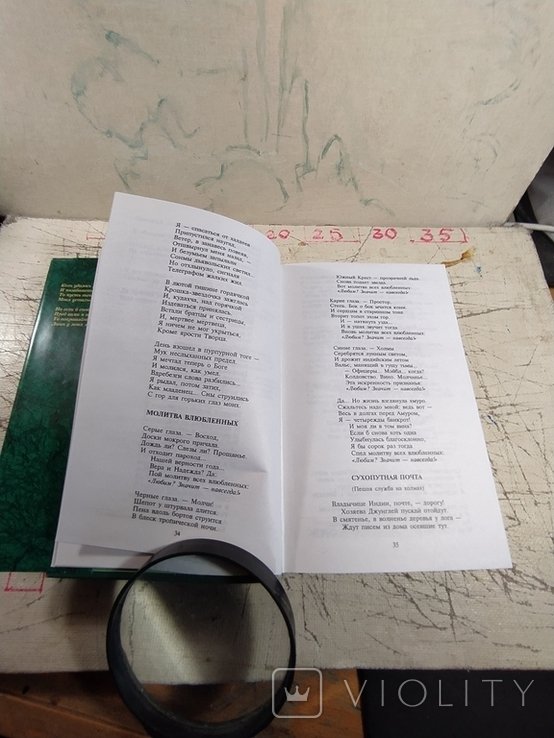 20 25 30 35
Я — спасаться от
Припустился наугад.
Ветер, в занавесь повеяв,
Отшвырнул меня назад, —
И безумьем
Сонмы дьявольских светил,
Но отхлынуло, сигналя
Телеграфом жалких жил.
В лютой пагоне горячечной
Крошка-звездочка зажглась
И, кулачка, над горячкой
Издеваться принялась.
Встали братцы и сестрицы,
И, мертвее мертвеца,
Я ничем не мог укрыться,
Кроме ярости Творца.
День взошел в пурпурной тоге —
Мук неслыханных предел.
Я мечтал теперь о Боге
И молился, как умел.
Вдребезги слова разбились...
Я рыдал, потом затих,
Как младенец... Сны струились
С гор для горьких глаз моих.
МОЛИТВА ВЛЮБЛЕННЫХ
Серые глаза. — Восход,
Доски мокрого причала.
Дождь ли? Слезы ли? Прощанье.
И отходит пароход.
Нашей верности года...
Вера и Надежда? Да:
Пой молитву всех влюбленных:
«Любим? Значит — навсегда!»
Черные глаза. — Молчи!
Шепот у штурвала длится.
Пена вдоль бортов струится
В блеск тропической ночи.
34
Южный Крест — прозрачней льда.
Снова тонет звезда.
Вот молитва всех влюбленных:
«Любим? Значит — навсегда!»
Карие глаза. — Простор,
Степь. Бок о бок мчатся кони.
И сердцам в старинном тоне
Вторит топот эхом гор.
И — натянута узда...
И в ушах звучит тогда
Вновь молитва всех влюбленных:
«Любим? Значит — навсегда!»
Синие глаза. — Холмы
Серебрятся лунным светом,
И дрожит индийским летом
Вальс, манящий в гущу тьмы...
— Офицеры... Мэйбл, когда?
Колдовство. Вино. Молчанье.
Эта искренность признанья:
«Любим? Значит — навсегда!»
Да... Но жизнь взглянула хмуро,
Сжальтесь надо мной: ведь вот —
Весь в долгах перед Амуром,
Я — четырежды банкрот!
И моя ли в том вина?
Если б снова хоть одна
Улыбнулась благосклонно,
Я бы сорок раз тогда
Спел молитву всех влюбленных:
«Любим? Значит — навсегда!»
СУХОПУТНАЯ ПОЧТА
(Пешая служба на холмах)
Владычице Индии, почте, — дорогу!
Хозяева Джунглей пускай отойдут.
В смятенье, в волненье деревья у лога —
Ждут писем из дома осевшие тут.
35
VIOLITY